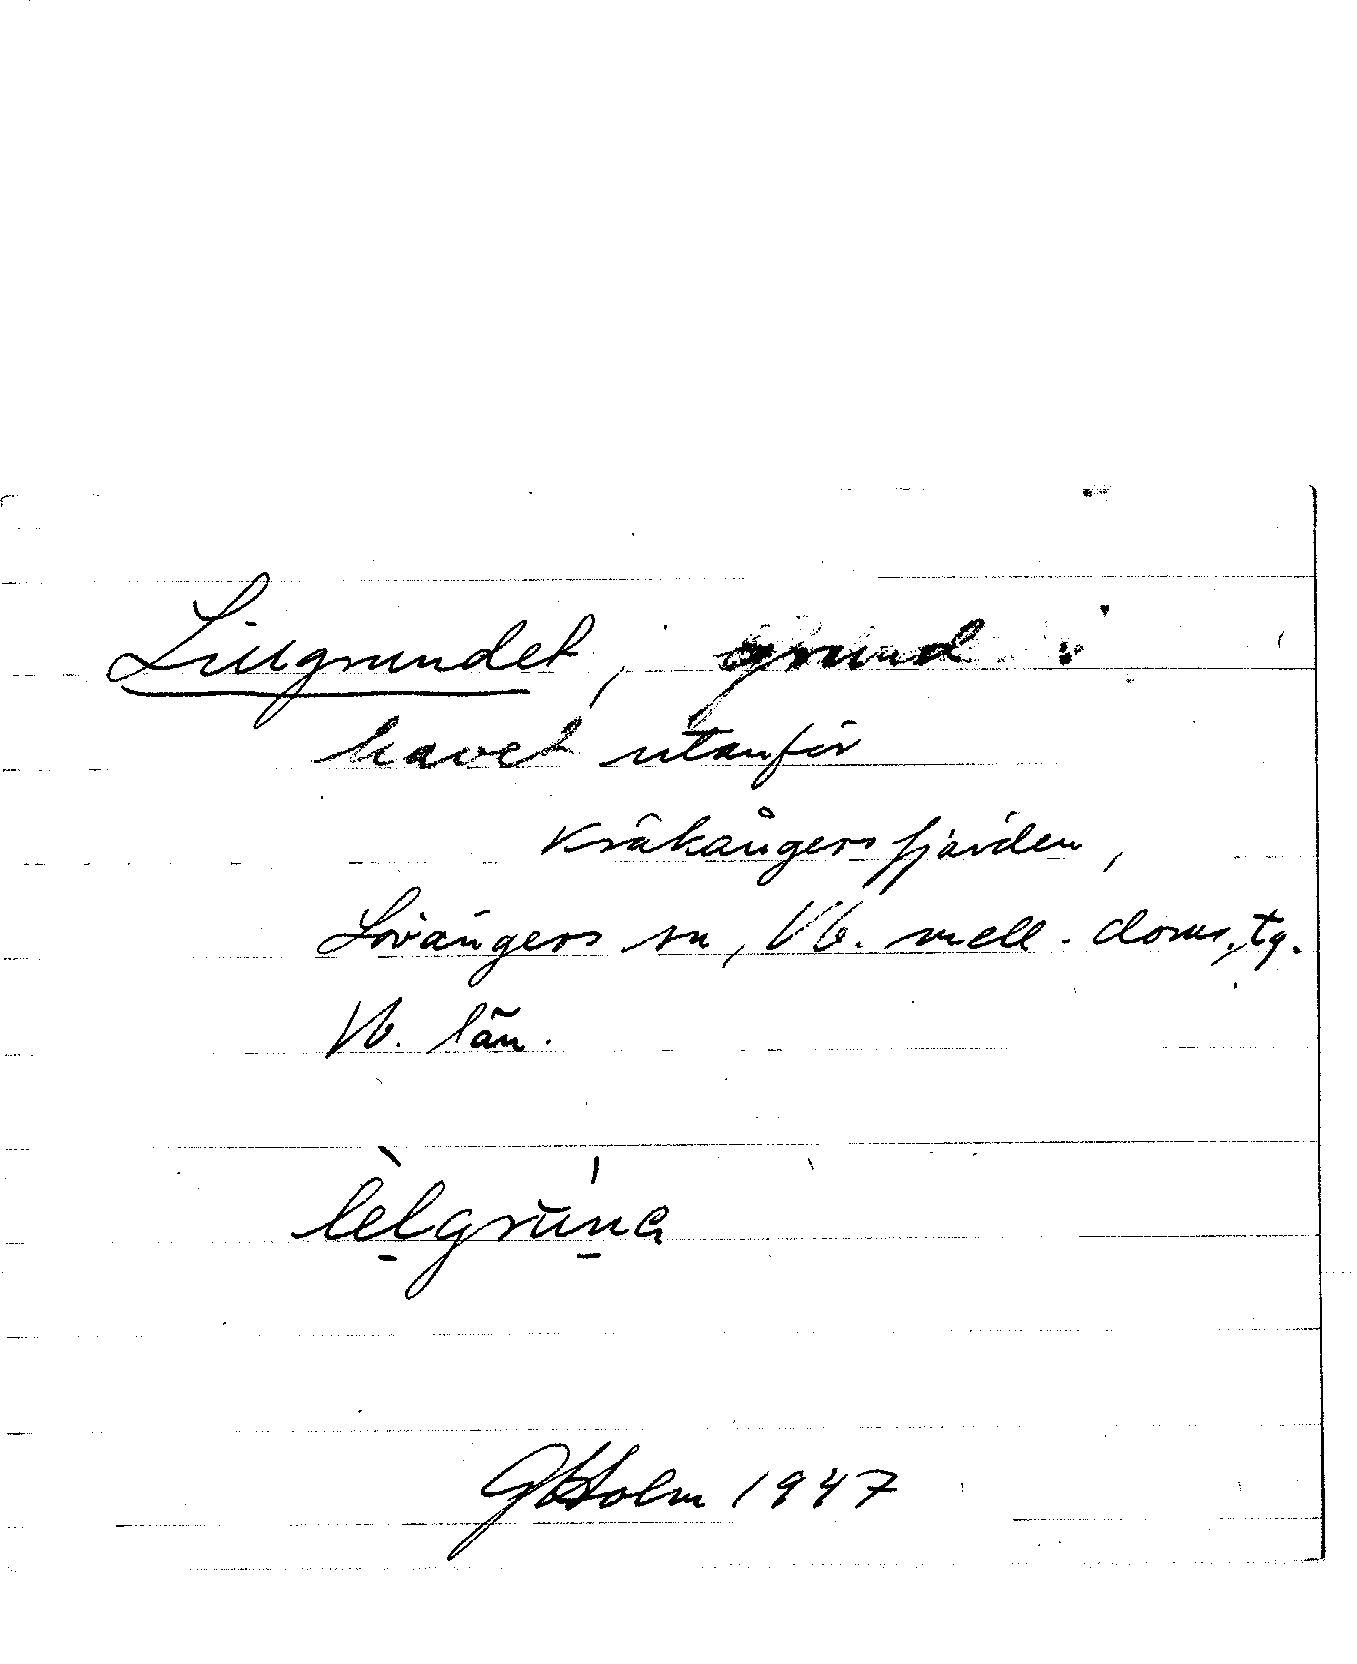 Lillgrundet, grund i
havet utanför
Kråkångersfjärden,
Lövångers sn, Vb. mell. doms.tg.
Vb. län.
lèlgrùna
GHolm 1947